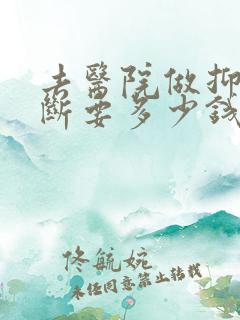 去醫院做抑
斷要多少錢
佟毓婉
未經同意禁止轉載